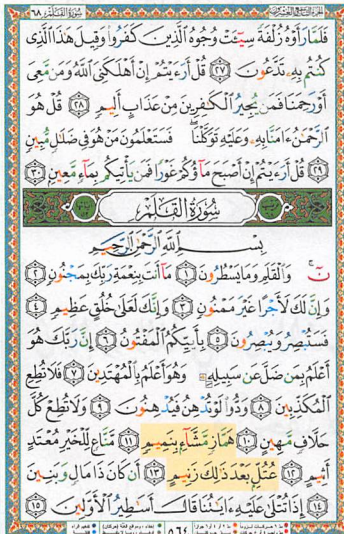 سُورَةُ القَلَم ٦٨
فَلَمَّا رَأَوْهُ زُلْفَةً سِيٓـَٔتْ وُجُوهُ ٱلَّذِينَ كَفَرُوا۟ وَقِيلَ هَٰذَا ٱلَّذِى
كُنتُم بِهِۦ تَدَّعُونَ ٢٧ قُلْ أَرَءَيْتُمْ إِنْ أَهْلَكَنِىَ ٱللَّهُ وَمَن مَّعِىَ
أَوْ رَحِمَنَا فَمَن يُجِيرُ ٱلْكَٰفِرِينَ مِنْ عَذَابٍ أَلِيمٍ ٢٨ قُلْ هُوَ
ٱلرَّحْمَٰنُ ءَامَنَّا بِهِۦ وَعَلَيْهِ تَوَكَّلْنَا فَسَتَعْلَمُونَ مَنْ هُوَ فِى ضَلَٰلٍ مُّبِينٍ
٢٩ قُلْ أَرَءَيْتُمْ إِنْ أَصْبَحَ مَآؤُكُمْ غَوْرًا فَمَن يَأْتِيكُم بِمَآءٍ مَّعِينٍۭ ٣٠
سُورَةُ القَلَمِ
بِسْمِ ٱللَّهِ ٱلرَّحْمَٰنِ ٱلرَّحِيمِ
نٓ وَٱلْقَلَمِ وَمَا يَسْطُرُونَ ١ مَآ أَنتَ بِنِعْمَةِ رَبِّكَ بِمَجْنُونٍ ٢
وَإِنَّ لَكَ لَأَجْرًا غَيْرَ مَمْنُونٍ ٣ وَإِنَّكَ لَعَلَىٰ خُلُقٍ عَظِيمٍ ٤
فَسَتُبْصِرُ وَيُبْصِرُونَ ٥ بِأَييِّكُمُ ٱلْمَفْتُونُ ٦ إِنَّ رَبَّكَ هُوَ
أَعْلَمُ بِمَن ضَلَّ عَن سَبِيلِهِۦ وَهُوَ أَعْلَمُ بِٱلْمُهْتَدِينَ ٧ فَلَا تُطِعِ
ٱلْمُكَذِّبِينَ ٨ وَدُّوا۟ لَوْ تُدْهِنُ فَيُدْهِنُونَ ٩ وَلَا تُطِعْ كُلَّ
حَلَّافٍ مَّهِينٍ ١٠ هَمَّازٍ مَّشَّآءٍۭ بِنَمِيمٍ ١١ مَّنَّاعٍ لِّلْخَيْرِ مُعْتَدٍ
أَثِيمٍ ١٢ عُتُلٍّۭ بَعْدَ ذَٰلِكَ زَنِيمٍ ١٣ أَن كَانَ ذَا مَالٍ وَبَنِينَ
١٤ إِذَا تُتْلَىٰ عَلَيْهِ ءَايَٰتُنَا قَالَ أَسَٰطِيرُ ٱلْأَوَّلِينَ ١٥